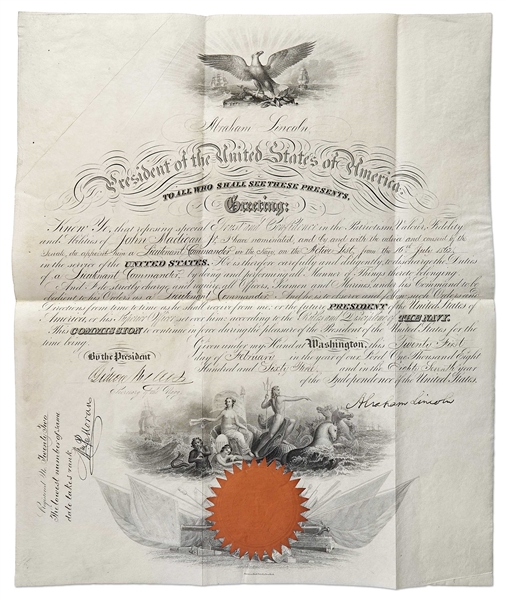 Abraham Lincoln,
President of the United States of America.
TO ALL WHO SHALL SEE THESE PRESENTS,
Greeting:
Know Ye, that reposing special Trust and Confidence in the Patriotism, Valour, Fidelity
and Abilities of John Madigan Jr I have nominated, and by and with the advice and consent of the
Senate, do appoint him a Lieutenant Commander in the Navy, on the Active List from the 16th July 1862
in the service of the UNITED STATES. He is therefore carefully and diligently to discharge the Duties
of a Lieutenant Commander by doing and performing all Manner of Things thereto belonging.
And I do strictly charge and require all Officers, Seamen and Marines under his Command to be
obedient to his Orders as a Lieutenant Commander And he is to observe and follow such Orders and
Directions from time to time as he shall receive from me, or the future PRESIDENT of the United States of
America, or his Superior Officer set over him, according to the Rules and Discipline of THE NAVY.
This COMMISSION to continue in force during the pleasure of the President of the United States for the
time being.
Given under my Hand at Washington, this Twenty First
day of February in the year of our Lord One Thousand Eight
Hundred and Sixty Three and in the Eighty Seventh year
of the Independence of the United States.
By the President
Gideon Welles
Secretary of the Navy.
Abraham Lincoln
Registered No. Twenty Two
The lowest number of same
date takes rank.